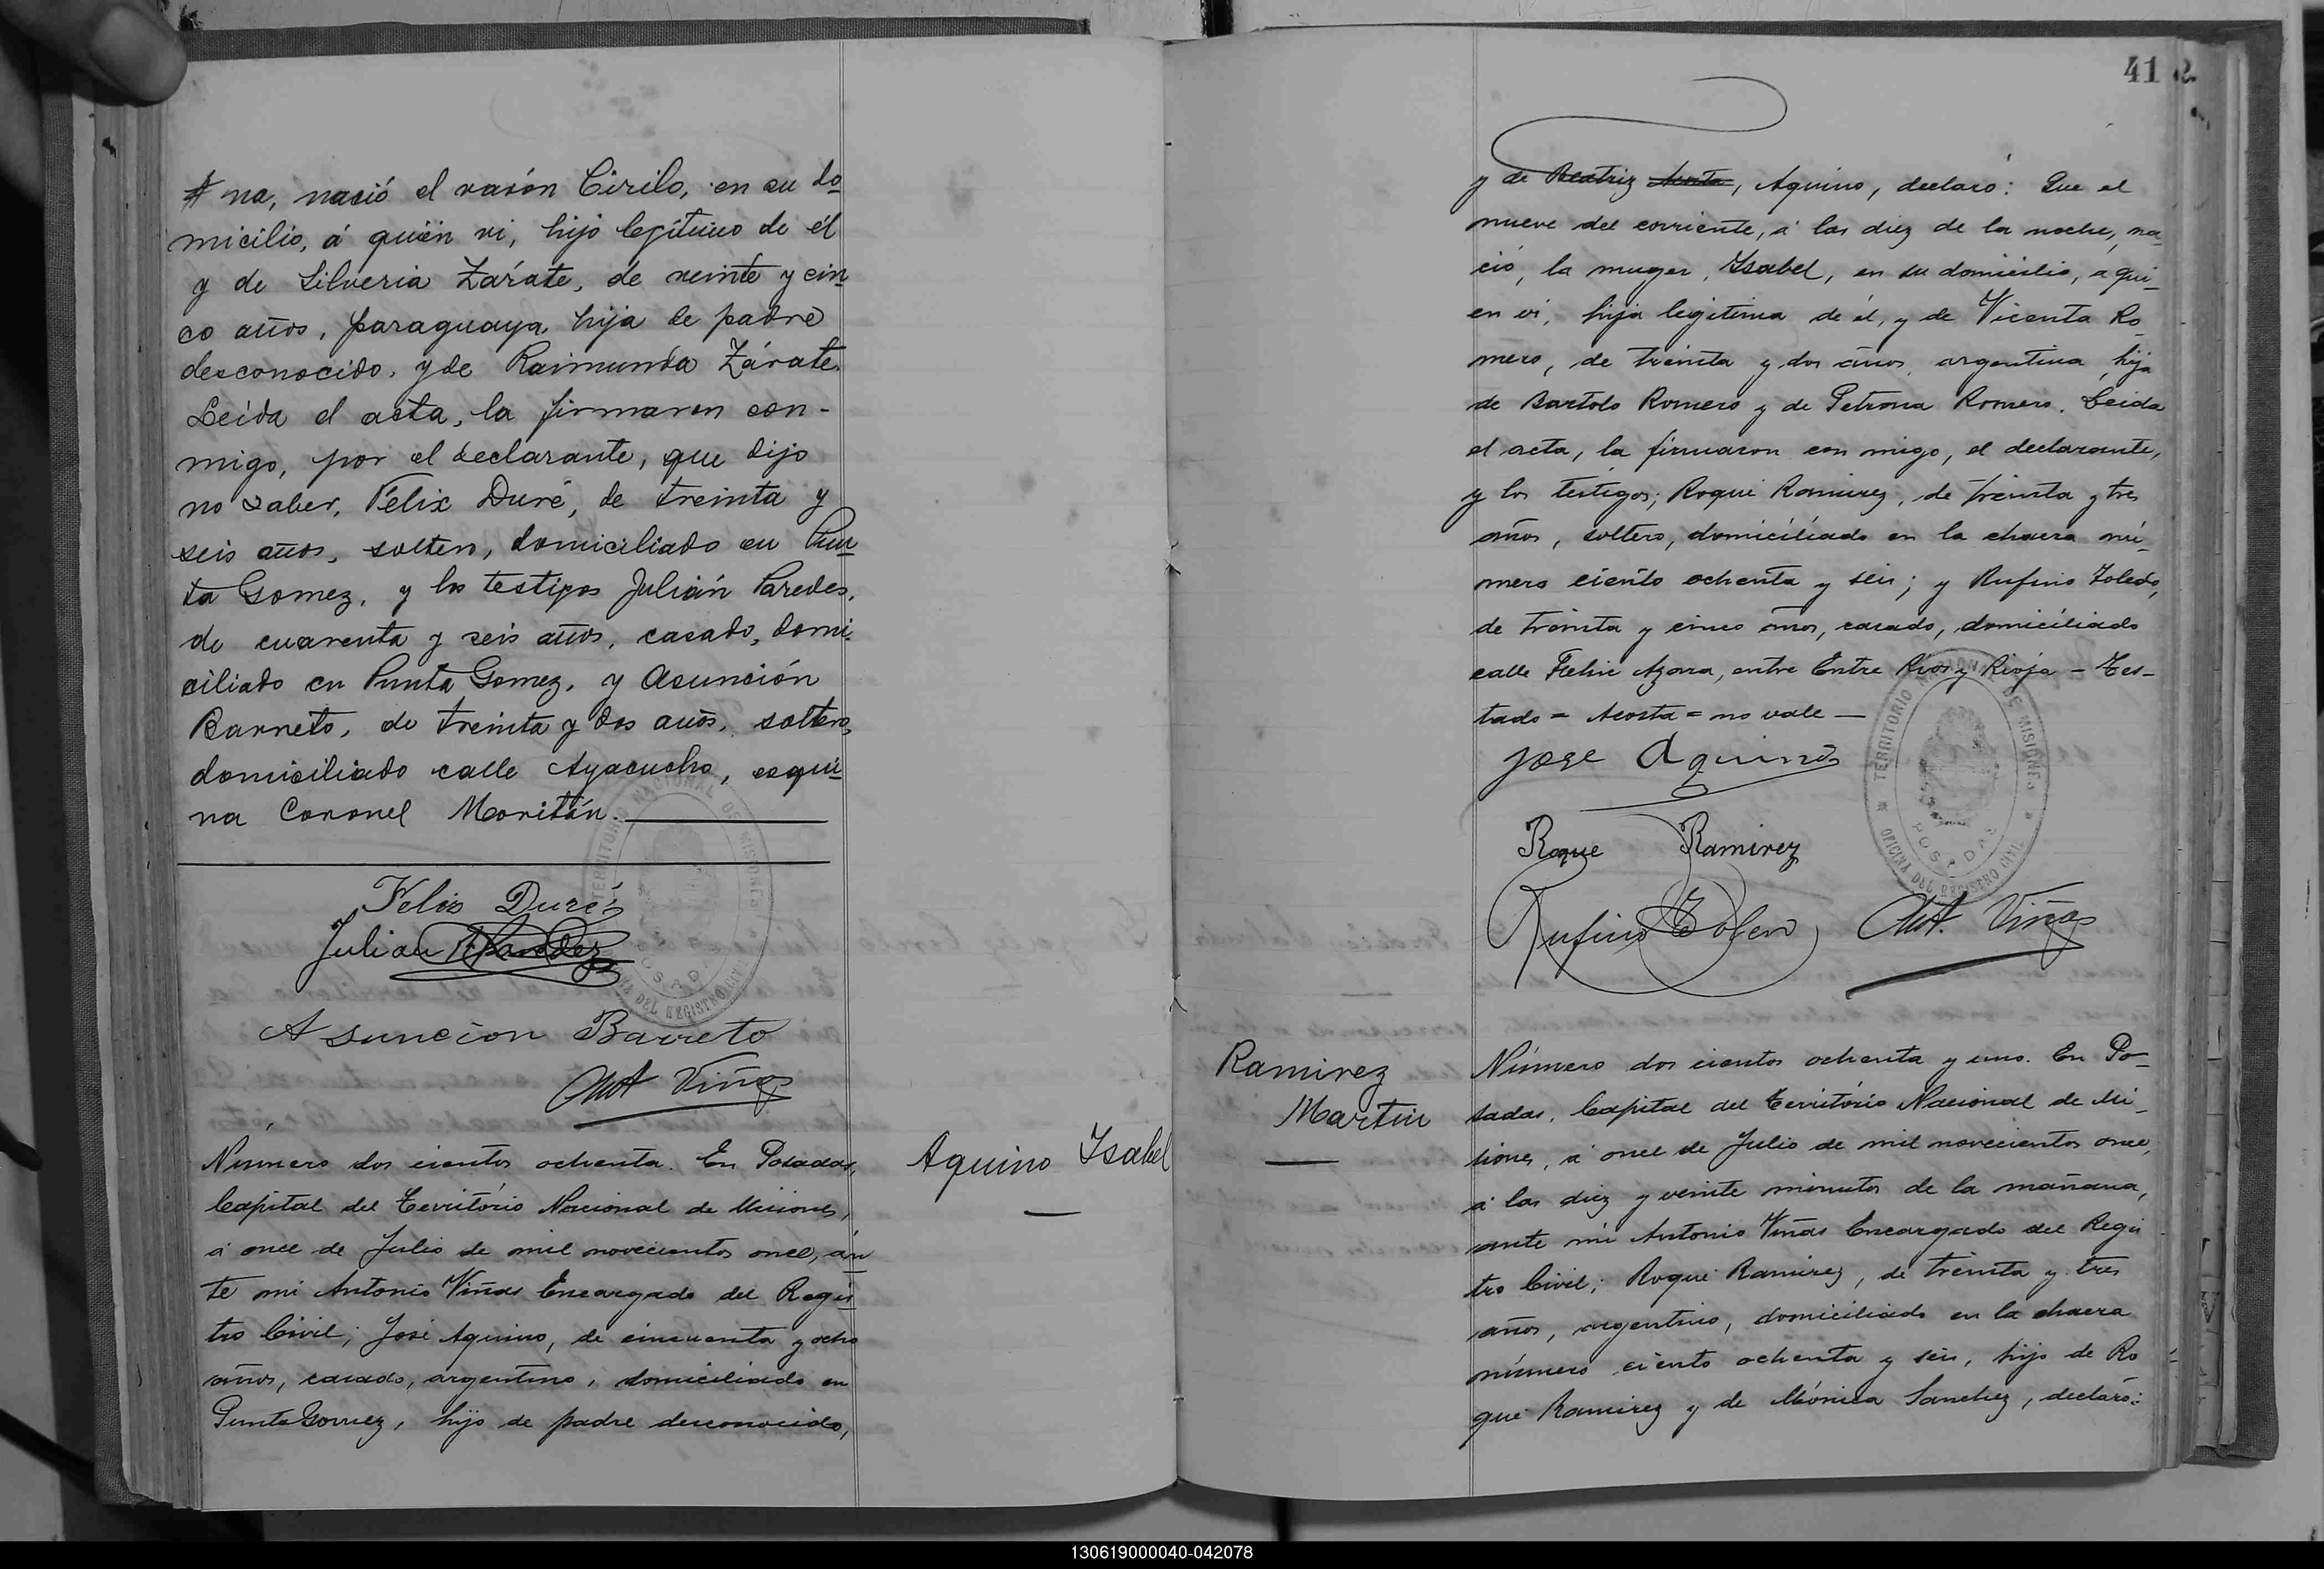 na, nació el varón Cirilo, en su do
micilio, á quién vi, hijo legítimo de él
y de Silveria Zárate, de veinte y cin
co años, paraguaya, hija de padre
desconocido, y de Raimunda Zárate.
Leída el acta, la firmaron con-
migo, por el declarante, que dijo
no saber, Félix Duré, de treinta y
seis años, soltero, domiciliado en Pun
ta Gomez, y los testigos Julián Paredes,
de cuarenta y seis años, casado, domi
ciliado en Punta Gomez, y Asunción
Barreto, de treinta y dos años, soltero,
domiciliado calle Ayacucho, esqui
na Coronel Moritán.
TERRITORIO NACIONAL DE MISIONES
POSADAS
OFICINA DEL REGISTRO CIVIL
Felix Duré
Julian Paredez
Asuncion Barreto
Ant Viñas
Aquino Isabel
Número dos cientos ochenta. En Posadas,
Capital del Território Nacional de Misiones,
á once de Julio de mil novecientos once, án
te mi Antonio Viñas Encargado del Regis
tro Civil; José Aquino, de cincuenta y ocho
años, casado, argentino, domiciliado en
Punta Gomez, hijo de padre desconocido,
41 2
y de Beatriz Acosta, Aquino, declaró: Que el
nueve del corriente, á las diez de la noche, na
ció, la muger, Isabel, en su domicilio, a qui
en vi, hija legitima de él, y de Vicenta Ro
mero, de treinta y dos años, argentina, hija
de Bartolo Romero y de Petrona Romero. Leida
el acta, la firmaron con migo, el declarante,
y los testigos; Roque Ramirez, de treinta y tres
años, soltero, domiciliado en la chacra nú
mero ciento ochenta y seis; y Rufino Toledo,
de treinta y cinco años, casado, domiciliado
calle Felix Azara, entre Entre Rios y Rioja - Tes-
tado = Acosta = no vale —
TERRITORIO NACIONAL DE MISIONES
POSADAS
OFICINA DEL REGISTRO CIVIL
Jose Aquino
Roque Ramirez
Rufino Toledo
Ant. Viñas
Ramirez
Martin
Número dos cientos ochenta y uno. En Po-
sadas, Capital del Território Nacional de Mi-
siones, á once de Julio de mil novecientos once,
á las diez y veinte minutos de la mañana,
ante mi Antonio Viñas Encargado del Regis
tro Civil; Roque Ramirez, de treinta y tres
años, argentino, domiciliado en la chacra
número ciento ochenta y seis, hijo de Ro
que Ramirez y de Mónica Sanchez, declaró:
130619000040-042078